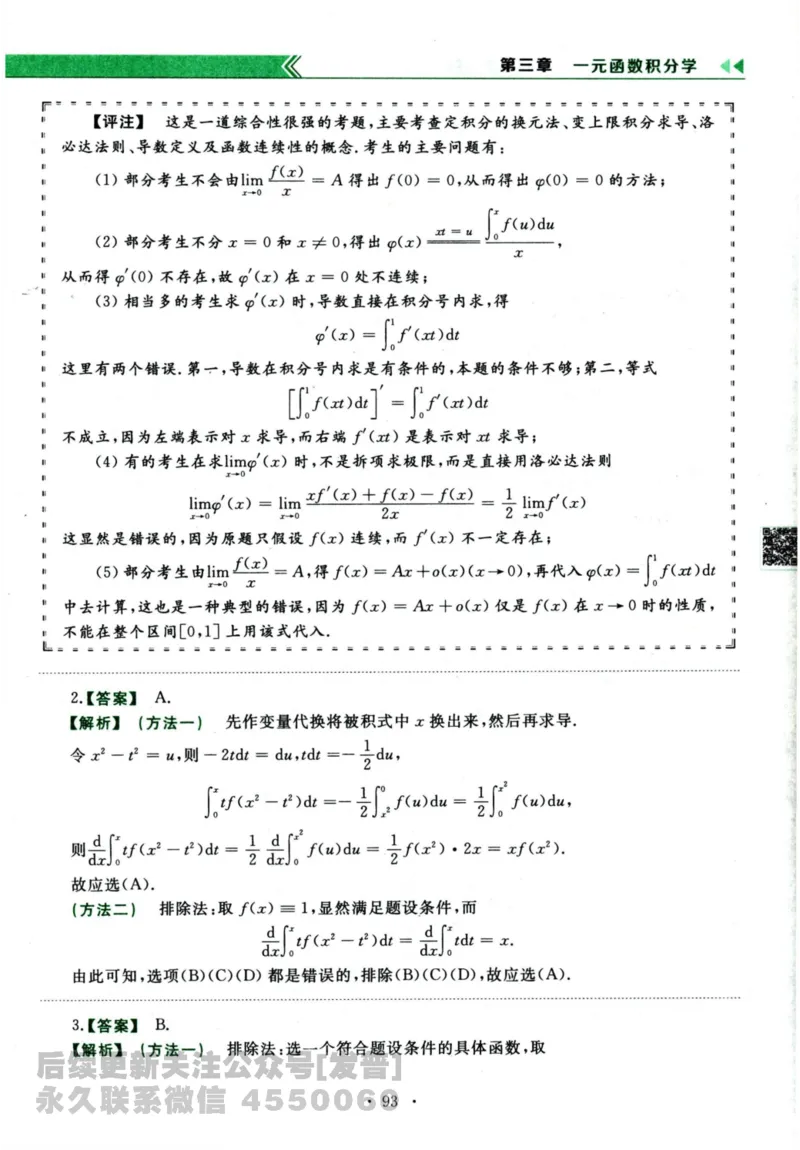 第三章 一元函数积分学
【评注】 这是一道综合性很强的考题,主要考查定积分的换元法、变上限积分求导、洛
必达法则、导数定义及函数连续性的概念.考生的主要问题有:
(1) 部分考生不会由$\lim_{x \to 0} \frac{f(x)}{x} = A$ 得出 $f(0) = 0$,从而得出 $\varphi(0) = 0$ 的方法;
(2) 部分考生不分 $x = 0$ 和 $x \neq 0$,得出 $\varphi(x) \xlongequal{xt = u} \frac{\int_0^x f(u)du}{x}$,
从而得 $\varphi'(0)$ 不存在,故 $\varphi'(x)$ 在 $x = 0$ 处不连续;
(3) 相当多的考生求 $\varphi'(x)$ 时,导数直接在积分号内求,得
$\varphi'(x) = \int_0^1 f'(xt)dt$
这里有两个错误.第一,导数在积分号内求是有条件的,本题的条件不够;第二,等式
$\left[\int_0^1 f(xt)dt\right]' = \int_0^1 f'(xt)dt$
不成立,因为左端表示对 $x$ 求导,而右端 $f'(xt)$ 是表示对 $xt$ 求导;
(4) 有的考生在求$\lim_{x \to 0} \varphi'(x)$ 时,不是拆项求极限,而是直接用洛必达法则
$\lim_{x \to 0} \varphi'(x) = \lim_{x \to 0} \frac{xf'(x) + f(x) - f(x)}{2x} = \frac{1}{2} \lim_{x \to 0} f'(x)$
这显然是错误的,因为原题只假设 $f(x)$ 连续,而 $f'(x)$ 不一定存在;
(5) 部分考生由$\lim_{x \to 0} \frac{f(x)}{x} = A$,得 $f(x) = Ax + o(x)(x \to 0)$,再代入 $\varphi(x) = \int_0^1 f(xt)dt$
中去计算,这也是一种典型的错误,因为 $f(x) = Ax + o(x)$ 仅是 $f(x)$ 在 $x \to 0$ 时的性质,
不能在整个区间[0,1]上用该式代入.
2.【答案】 A.
【解析】 (方法一) 先作变量代换将被积式中 $x$ 换出来,然后再求导.
令 $x^2 - t^2 = u$,则 $-2tdt = du$,$tdt = -\frac{1}{2}du$,
$\int_0^x tf(x^2 - t^2)dt = -\frac{1}{2}\int_{x^2}^0 f(u)du = \frac{1}{2}\int_0^{x^2} f(u)du$,
则$\frac{d}{dx}\int_0^x tf(x^2 - t^2)dt = \frac{1}{2}\frac{d}{dx}\int_0^{x^2} f(u)du = \frac{1}{2}f(x^2) \cdot 2x = xf(x^2)$.
故应选(A).
(方法二) 排除法:取 $f(x) \equiv 1$,显然满足题设条件,而
$\frac{d}{dx}\int_0^x tf(x^2 - t^2)dt = \frac{d}{dx}\int_0^x tdt = x$.
由此可知,选项(B)(C)(D) 都是错误的,排除(B)(C)(D),故应选(A).
3.【答案】 B.
【解析】 (方法一) 排除法:选一个符合题设条件的具体函数,取
后续更新关注公众号[发普]
永久联系微信 4550069
· 93 ·